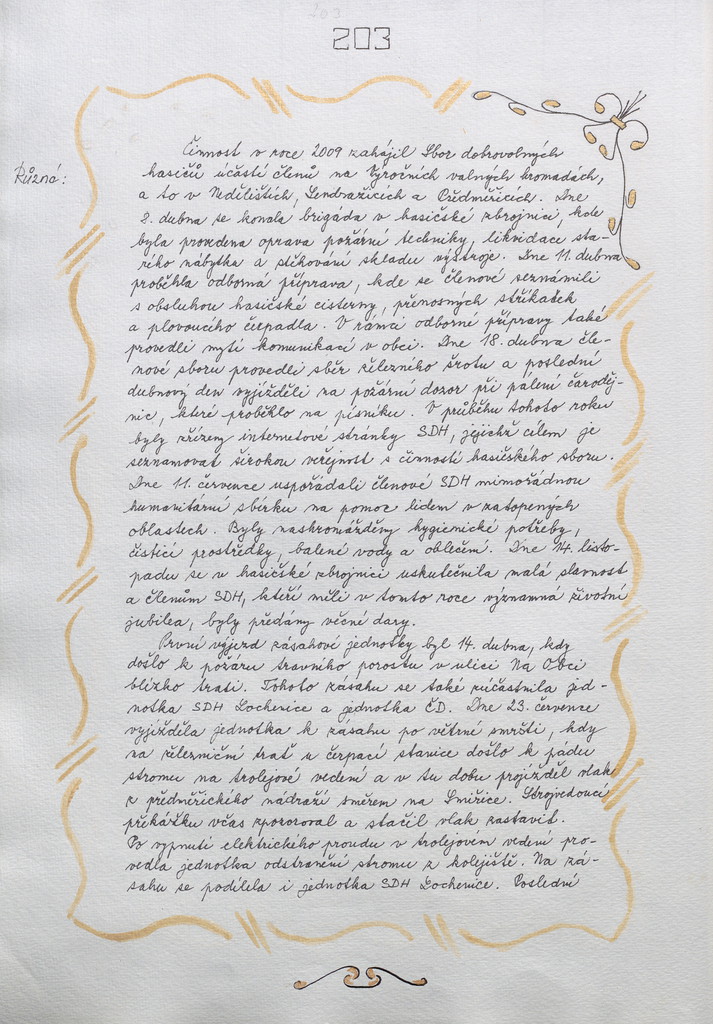 203
Různé:
Činnost v roce 2009 zahájil Sbor dobrovolných
hasičů účastí členů na Výročních valných hromadách,
a to v Nedělištích, Sendražicích a Předměřicích. Dne
2. dubna se konala brigáda v hasičské zbrojnici, kde
byla provedena oprava požární techniky, likvidace sta-
rého nábytku a stěhování skladu výstroje. Dne 11. dubna
proběhla odborná příprava, kde se členové seznámili
s obsluhou hasičské cisterny, přenosných stříkaček
a plovoucího čerpadla. V rámci odborné přípravy také
provedli mytí komunikací v obci. Dne 18. dubna čle-
nové sboru provedli sběr železného šrotu a poslední
dubnový den vyjížděli na požární dozor při pálení čaroděj-
nic, které proběhlo na písníku. V průběhu tohoto roku
byly zřízeny internetové stránky SDH, jejichž cílem je
seznamovat širokou veřejnost s činností hasičského sboru.
Dne 11. července uspořádali členové SDH mimořádnou
humanitární sbírku na pomoc lidem v zatopených
oblastech. Byly nashromážděny hygienické potřeby,
čistící prostředky, balené vody a oblečení. Dne 14. listo-
padu se v hasičské zbrojnici uskutečnila malá slavnost
a členům SDH, kteří měli v tomto roce významná životní
jubilea, byly předány věcné dary.
První výjezd zásahové jednotky byl 14. dubna, kdy
došlo k požáru travního porostu v ulici Na Obci
blízko trati. Tohoto zásahu se také zúčastnila jed-
notka SDH Lochenice a jednotka ČD. Dne 23. července
vyjížděla jednotka k zásahu po větrné smršti, kdy
na železniční trať u čerpací stanice došlo k pádu
stromu na trolejové vedení a v tu dobu projížděl vlak
z předměřického nádraží směrem na Smiřice. Strojvedoucí
překážku včas zpozoroval a stačil vlak zastavit.
Po vypnutí elektrického proudu v trolejovém vedení pro-
vedla jednotka odstranění stromu z kolejiště. Na zá-
sahu se podílela i jednotka SDH Lochenice. Poslední